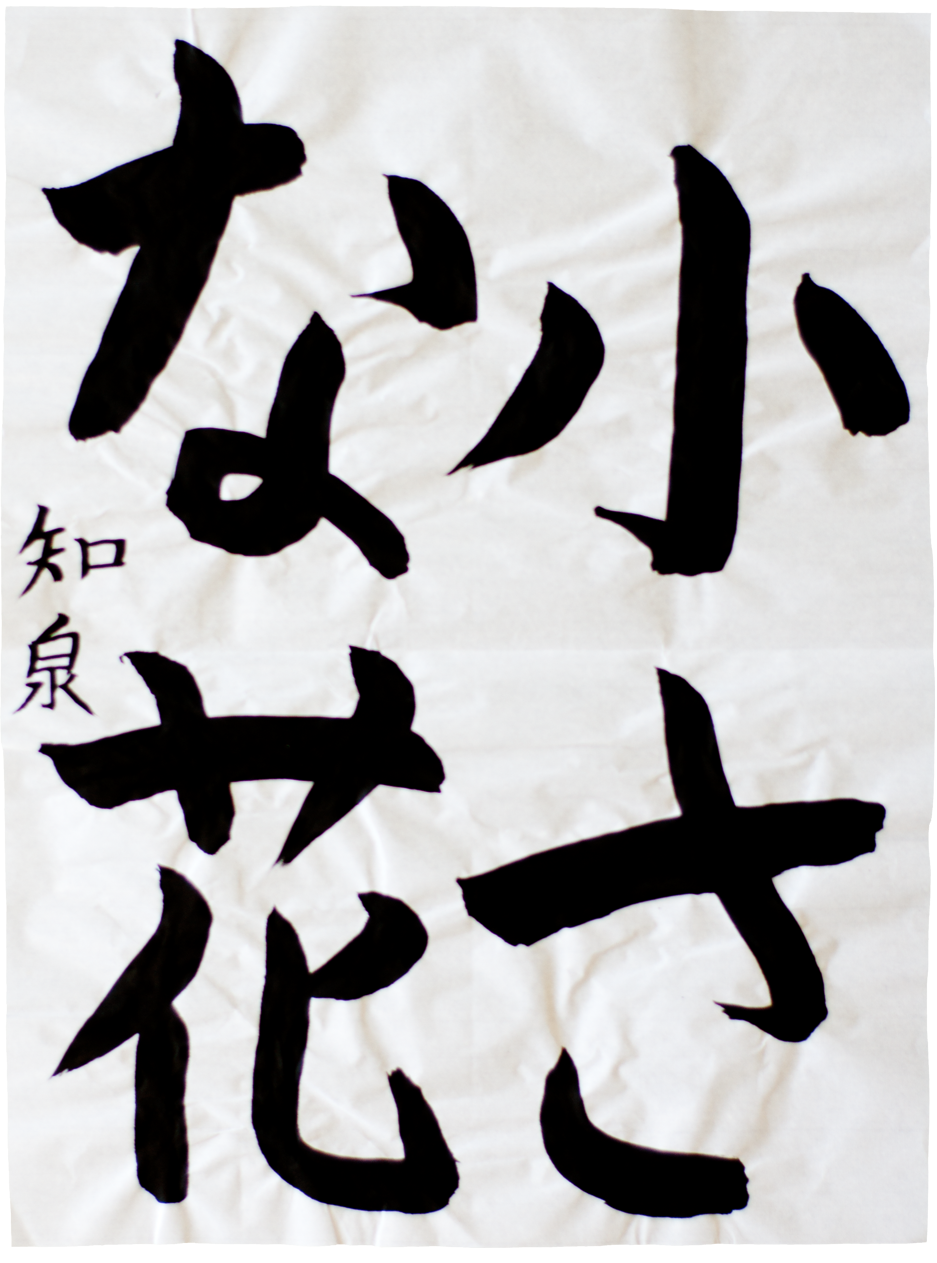 小さ
な花
知泉